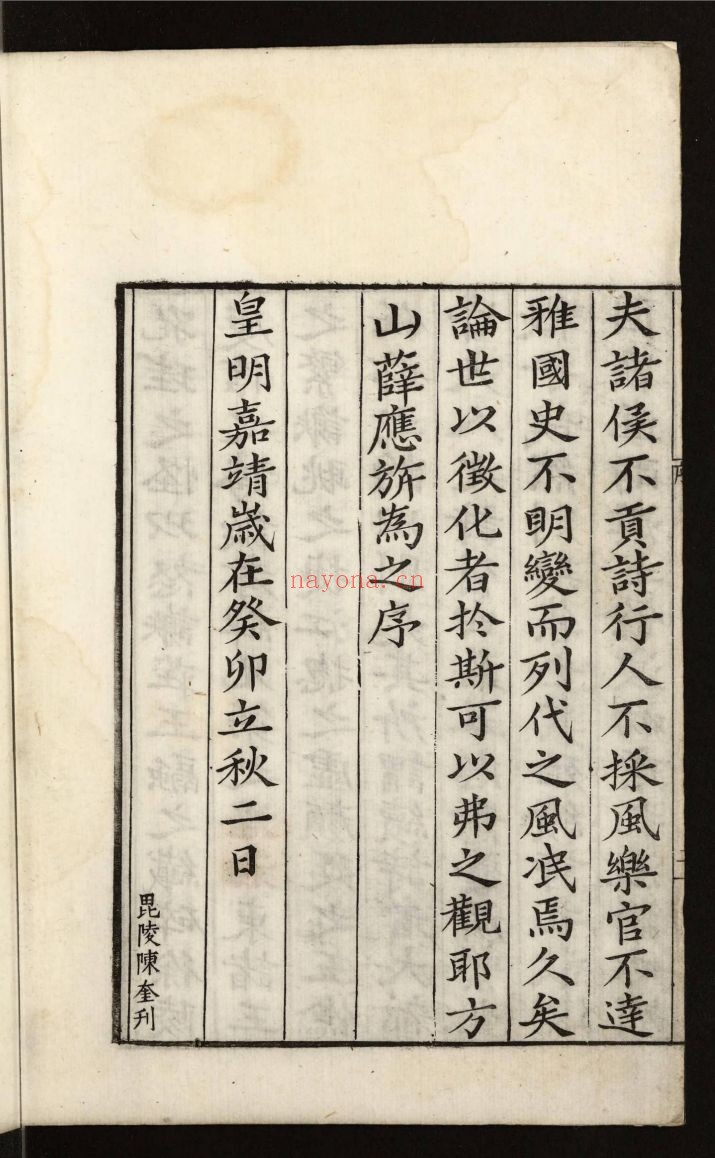 夫諸侯不貢詩行人不採風樂官不達
雅國史不明變而列代之風泯焉久矣
論世以徵化者於斯可以弗之觀耶方
山薛應旂為之序
皇明嘉靖歲在癸卯立秋二日
毘陵陳奎刊
nayona.cn